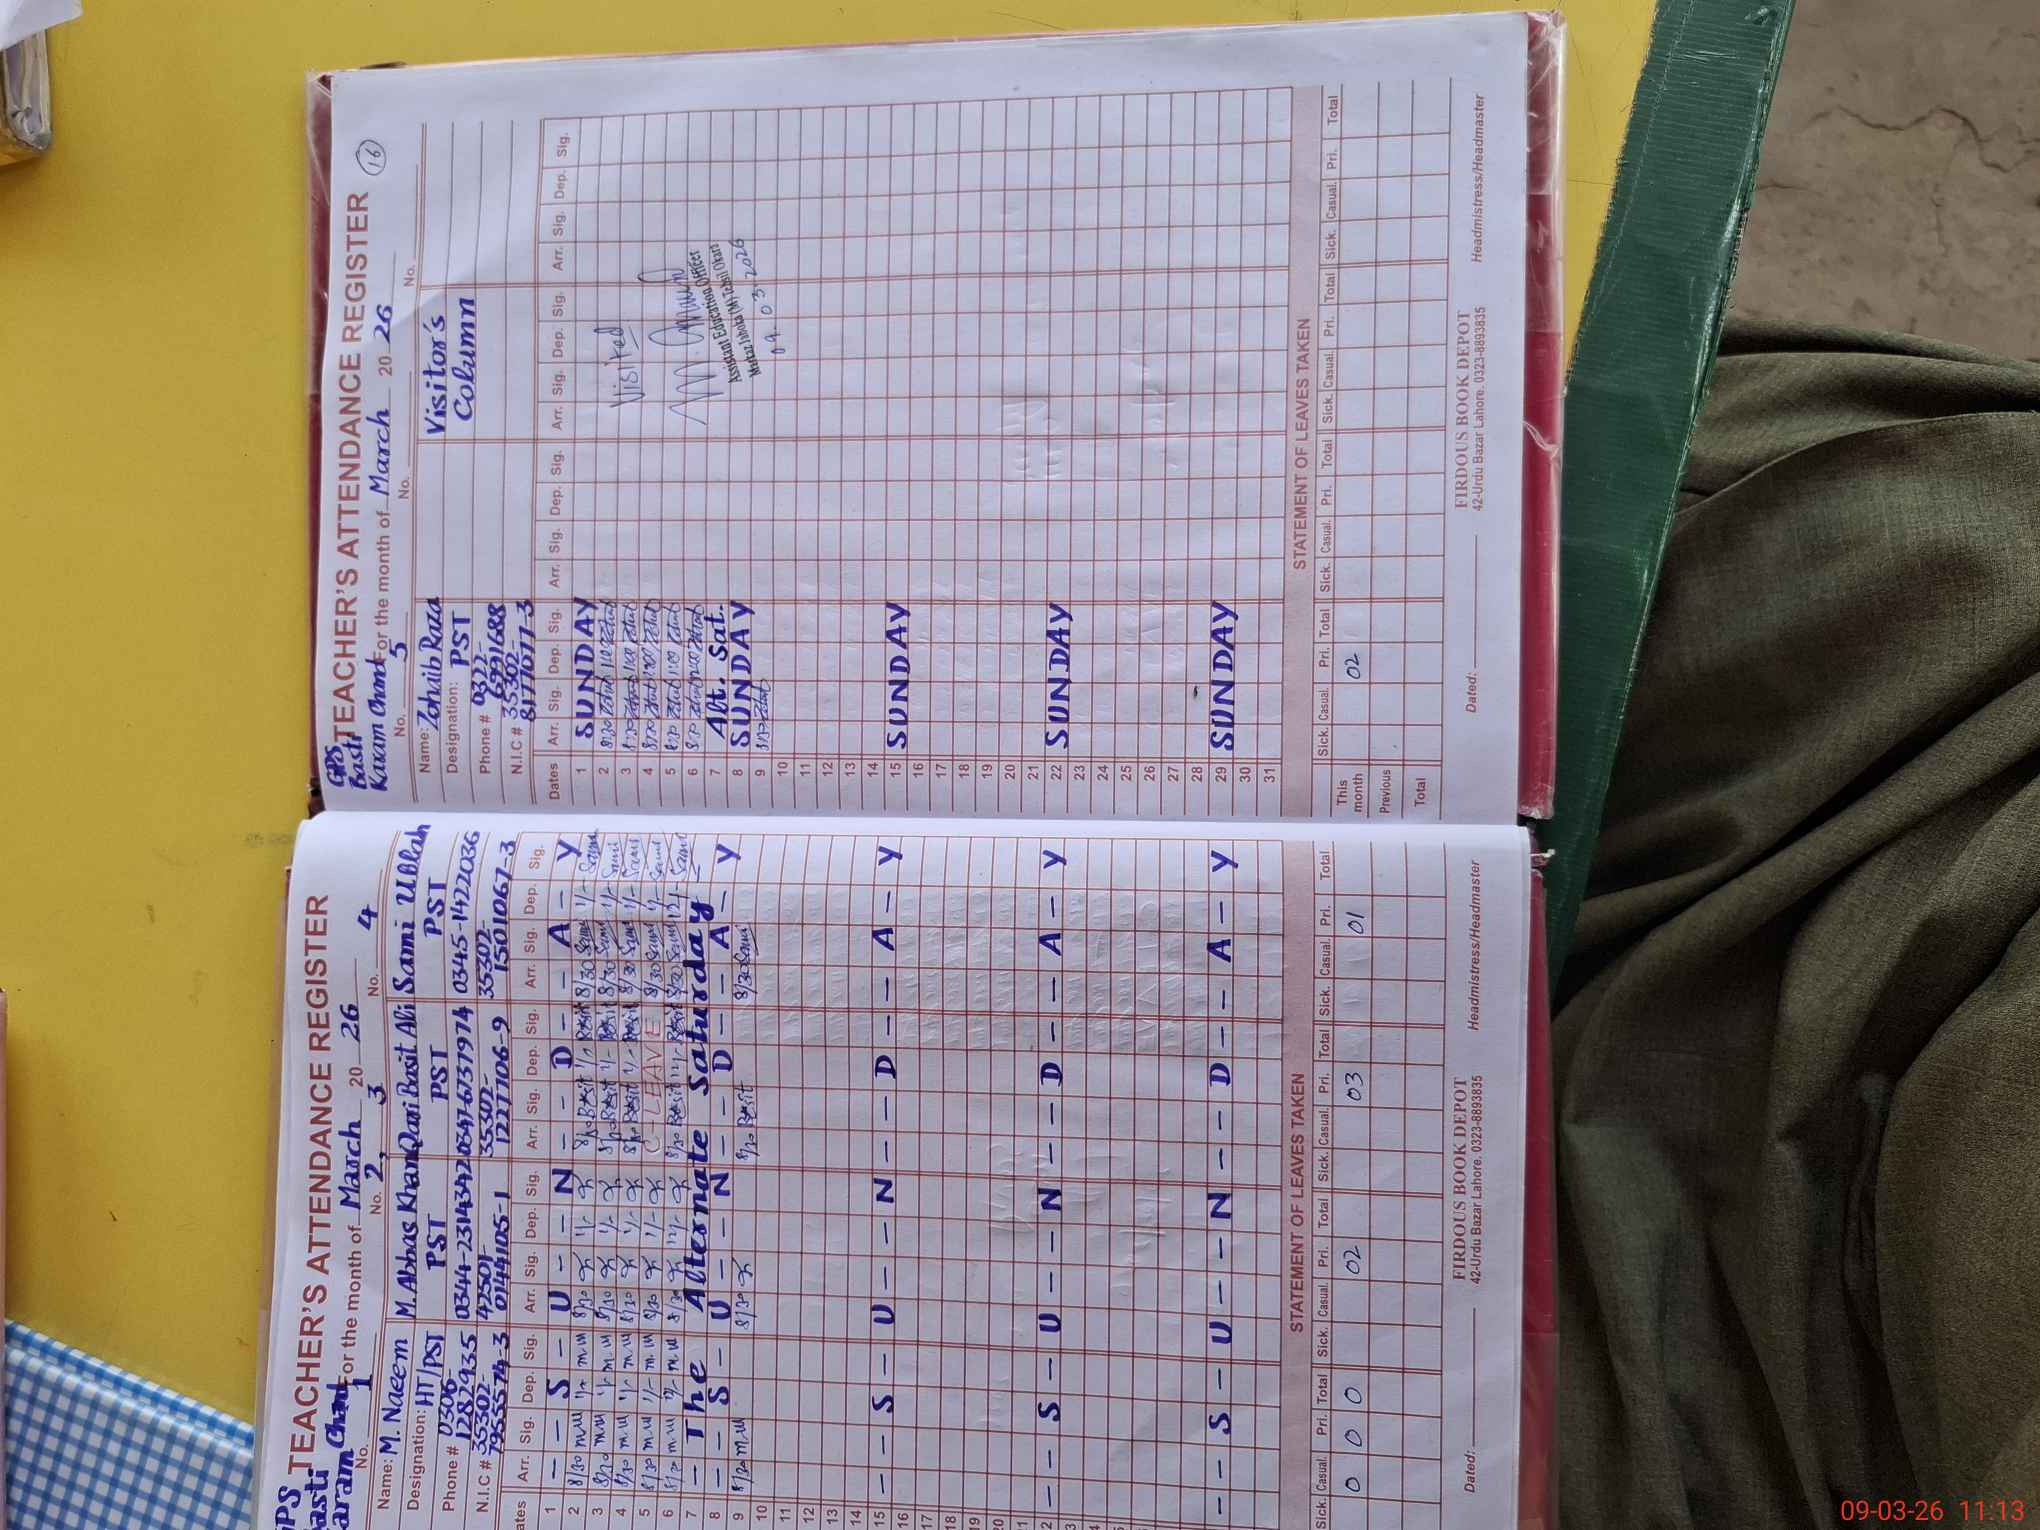 GPS Basti Karam Chand
TEACHER'S ATTENDANCE REGISTER
For the month of March 2026
No. 1 No. 2, 3 No. 4
Name: M. Naeem M. Abbas Khan Qari Basit Ali Sami Ullah
Designation: HT/PST PST PST PST
Phone # 0306-1282935 0344-2314342 0347-6737974 0345-1422036
N.I.C # 35302-7955574-3 42501-0144105-1 35302-1227706-9 35302-1501067-3
Dates Arr. Sig. Dep. Sig. Arr. Sig. Dep. Sig. Arr. Sig. Dep. Sig. Arr. Sig. Dep. Sig.
1 - - S - - U - - N - - D - - A - Y
2 8/30 m.w 1/- m.w 8/30 1/- 8/30 Basit 1/- Basit 8/30 Sami 1/- Sami
3 8/30 m.w 1/- m.w 8/30 1/- 8/30 Basit 1/- Basit 8/30 Sami 1/- Sami
4 8/30 m.w 1/- m.w 8/30 1/- 8/30 Basit 1/- Basit 8/30 Sami 1/- Sami
5 8/30 m.w 1/- m.w 8/30 1/- C-LEAVE 8/30 Sami 1/- Sami
6 8/30 m.w 12/- m.w 8/30 12/- 8/30 Basit 12/- Basit 8/30 Sami 12/- Sami
7 - The Alternate Saturday -
8 - - S - U - - N - - D - - A - Y
9 8/30 m.w 8/30 8/30 Basit 8/30 Sami
10
11
12
13
14
15 - - S - - U - - N - - - D - - - A - Y
16
17
18
19
20
21
22 - - S - - U - - - N - - - D - - - A - Y
- - S - - U - - - N - - - D - - - A - Y
STATEMENT OF LEAVES TAKEN
Sick. Casual. Pri. Total Sick. Casual. Pri. Total Sick. Casual. Pri. Total Sick. Casual. Pri. Total
0 0 0 02 03 01
Dated: Headmistress/Headmaster
FIRDOUS BOOK DEPOT
42-Urdu Bazar Lahore. 0323-8893835
GPS Basti Karam Chand
TEACHER'S ATTENDANCE REGISTER 16
For the month of March 2026
No. 5 No. No. No.
Name: Zohaib Raza Visitor's Column
Designation: PST
Phone # 0322-6991688
N.I.C # 35302-8177077-3
Dates Arr. Sig. Dep. Sig. Arr. Sig. Dep. Sig. Arr. Sig. Dep. Sig. Arr. Sig. Dep. Sig.
1 SUNDAY
2 8/30 1:00
3 8/30 1:00 Visited
4 8/30 1:00
5 8/30 1:00
6 8/30 12:00
7 Alt. Sat. Assistant Education Officer
8 SUNDAY Tehsil Okara
9 8/30 09.03.2026
10
11
12
13
14
15 SUNDAY
16
17
18
19
20
21
22 SUNDAY
23
24
25
26
27
28
29 SUNDAY
30
31
STATEMENT OF LEAVES TAKEN
Sick. Casual. Pri. Total Sick. Casual. Pri. Total Sick. Casual. Pri. Total Sick. Casual. Pri. Total
This month 02
Previous
Total
Dated: Headmistress/Headmaster
FIRDOUS BOOK DEPOT
42-Urdu Bazar Lahore. 0323-8893835
09-03-26 11:13